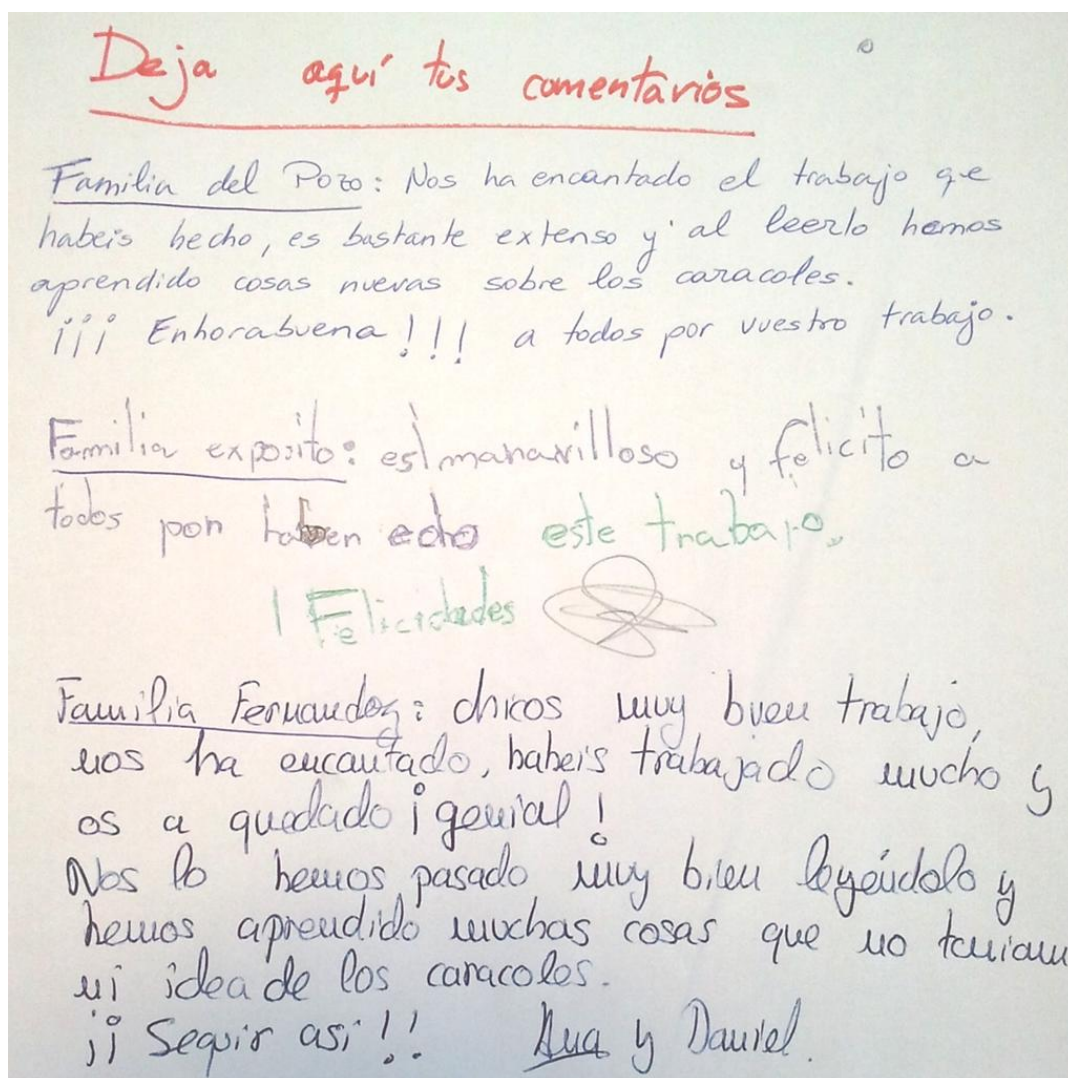 Deja aquí tus comentarios
Familia del Pozo: Nos ha encantado el trabajo que
habeis hecho, es bastante extenso y al leerlo hemos
aprendido cosas nuevas sobre los caracoles.
¡¡¡ Enhorabuena !!! a todos por vuestro trabajo.
Familia exposito: es maravilloso y felicito a
todos por haber echo este trabajo.
¡ Felicidades
Familia Fernandez: chicos muy buen trabajo,
nos ha encantado, habeis trabajado mucho y
os a quedado ¡genial!
Nos lo hemos pasado muy bien leyéndolo y
hemos aprendido muchas cosas que no teniam
ni idea de los caracoles.
¡¡ Seguir asi !! Ana y Daniel.